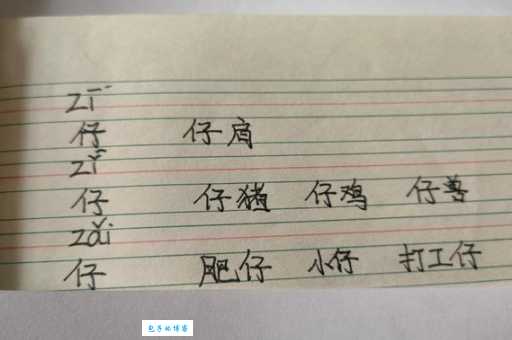 zī
仔 仔肩
zǐ
仔 仔猪 仔鸡 仔兽
zǎi
仔 肥仔 小仔 打工仔
包子的博客